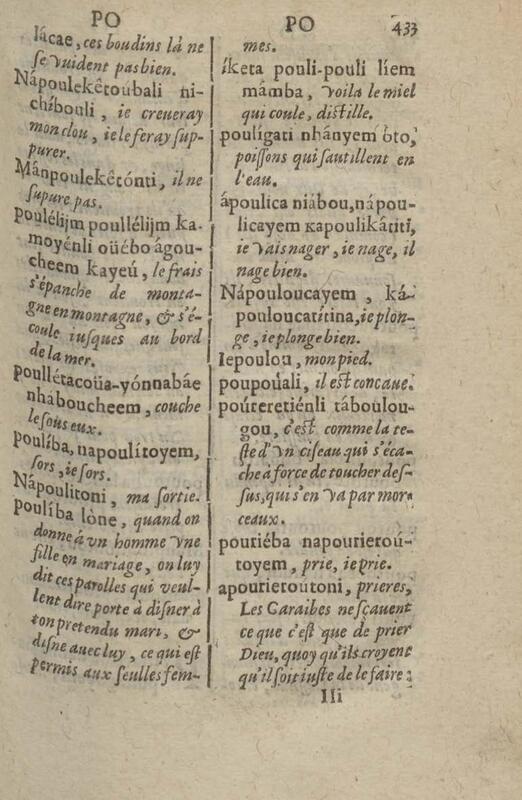 PO
lácae, ces boudins là ne
se vuident pas bien.
Nápoulekêtoubali ni-
chíbouli, ie creueray
mon clou, ie le feray sup-
purer.
Mánpoulekêtónti, il ne
supure pas.
poulélijm poullélijm ka-
moyénli oüébo ágou-
cheem kayeú, le frais
s'épanche de monta-
gne en montagne, & s'é-
coule iusques au bord
de la mer.
poullétacoüa-yónnabáe
nháboucheem, couche
le sous eux.
poulíba, napoulítoyem,
sors, ie sors.
Nápoulitoni, ma sortie.
poulíba lòne, quand on
donne à vn homme vne
fille en mariage, on luy
dit ces parolles qui veul-
lent dire porte à disner à
ton pretendu mari, &
disne auec luy, ce qui est
permis aux seulles fem-
PO 433
mes.
íketa pouli-pouli líem
mámba, voila le miel
qui coule, distille.
poulígati nhányem óto,
poissons qui sautillent en
l'eau.
ápoulica niábou, nápou-
licayem kapoulikátiti,
ie vais nager, ie nage, il
nage bien.
Nápouloucayem, ká-
pouloucatítina, ie plon-
ge, ie plonge bien.
Iepoulou, mon pied.
poupoúali, il est concaue.
poúteretiénli táboulou-
gou, c'est comme la te-
ste d'vn ciseau qui s'éca-
che à force de toucher des-
sus, qui s'en va par mor-
ceaux.
pouriéba napourieroú-
toyem, prie, ie prie.
apourieroútoni, prieres,
Les Caraibes ne sçauent
ce que c'est que de prier
Dieu, quoy qu'ils croyent
qu'il soit iuste de le faire:
Iii